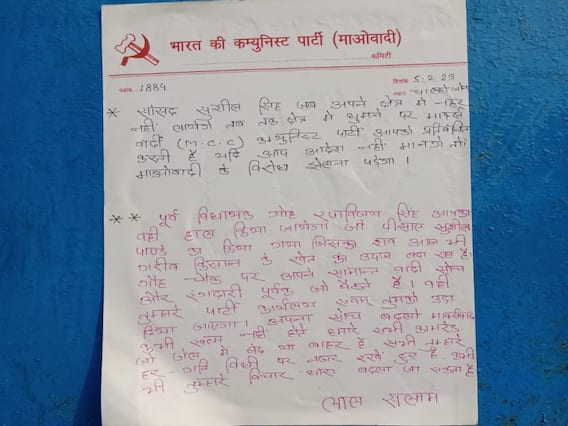 भारत की कम्युनिस्ट पार्टी (माओवादी)
कमिटी
पत्रांक 1884
दिनांक 5.2.23
स्थान चाल्हो जोन
* सांसद सुशील सिंह जब अपने क्षेत्र में नहर
नहीं लायेगें तब तक क्षेत्र में घुमने पर मार्क्स
वादी (M.C.C) कम्युनिस्ट पार्टी आपको प्रतिबंधित
करती है यदि आप आदेश नहीं मानते तो
माओवादी के विरोध झेलना पड़ेगा ।
** पूर्व विधायक गोह रणविजय सिंह आपका
वही हाल किया जायेगा जो पीसाए सुशील
पाण्डे का किया गया जिसका शव आज भी
गरीब किसान के खेत का उपज बढ़ा रहा है।
गोह चौक पर अपने सामान्त वादी सोच
और रंगदारी पूर्वक जो बैठते है । वही
तुम्हारे पार्टी कार्यालय एवम् तुमको उड़ा
दिया जाएगा । अपना सोच बदलो मार्क्सवाद
कभी खत्म नहीं होते हमारे सभी कामरेड
जो जेल में बंद या बाहर है सभी तुम्हारे
हर गति विधी पर नजर रखे हुए है. अभी
भी तुम्हारे विचार धारा बदला जा सकता है
लाल सलाम